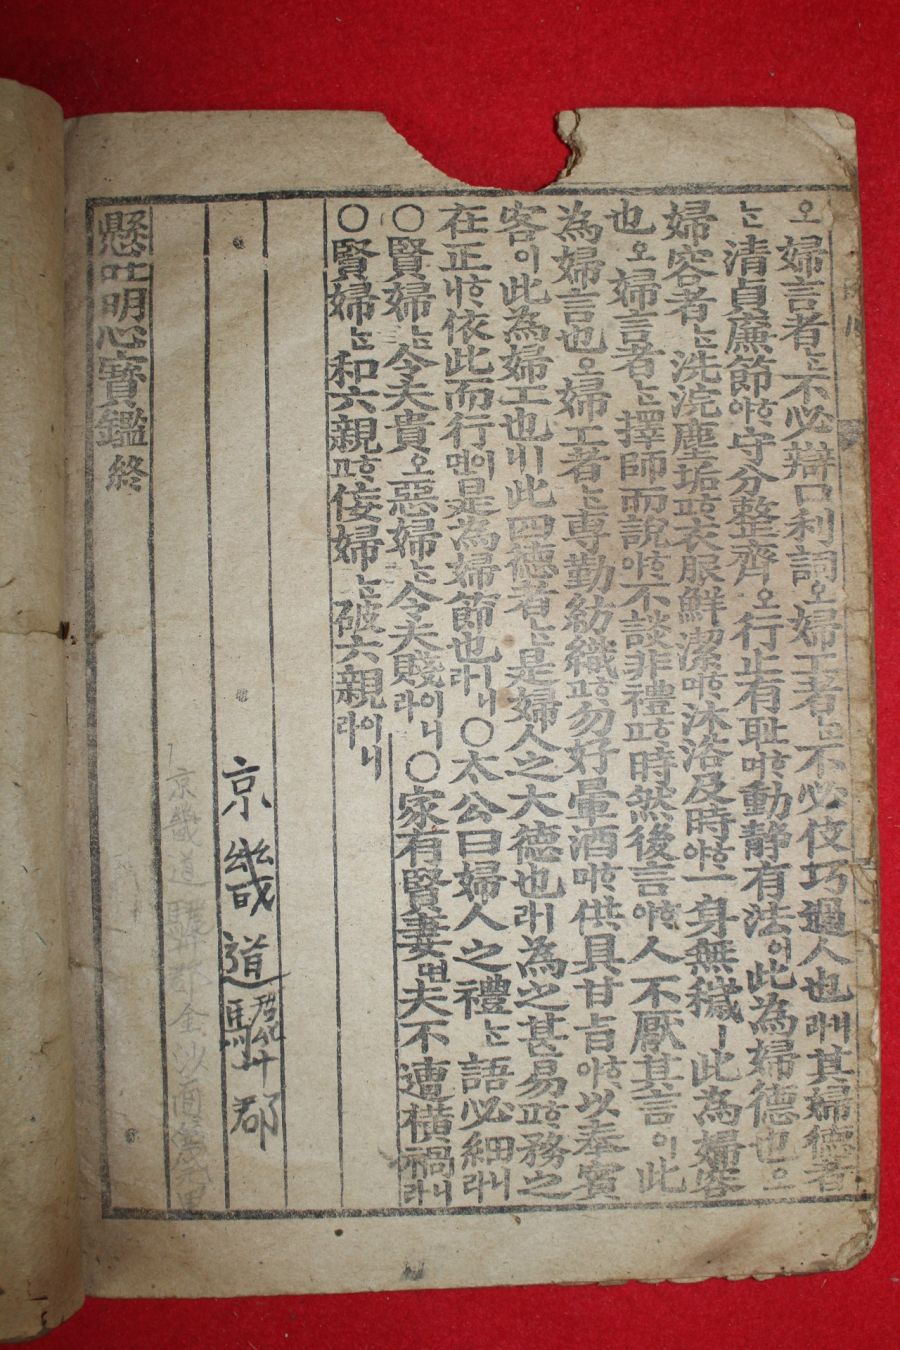 오婦言者는不必辯口利詞오婦工者는不必伎巧過人也ㅣ라其婦德者
는清貞廉節ᄒᆞ야守分整齊오行止有耻ᄒᆞ며動静有法이此為婦德也으
婦容者는洗浣塵垢ᄒᆞ고衣服鮮潔ᄒᆞ며沐浴及時ᄒᆞ야一身無穢ㅣ此為婦容
也오婦言者는擇師而說ᄒᆞ야不談非禮ᄒᆞ고時然後言ᄒᆞ야人不厭其言이此
為婦言也오婦工者는専勤紡織ᄒᆞ고勿好暈酒ᄒᆞ며供具甘旨ᄒᆞ야以奉賓
客이此為婦工也ㅣ니此四德者는是婦人之大德也ㅣ라為之甚易ᄒᆞ고務之
在正ᄒᆞ니依此而行이면是為婦節也ㅣ니라○太公曰婦人之禮는語必細니라
○賢婦는令夫貴오惡婦는令夫賤이니라○家有賢妻면夫不遭橫禍니라
○賢婦는和六親ᄒᆞ고侫婦는破六親이니라
京畿道驪州郡
京畿道驪州郡金沙面
懸吐明心寶鑑終